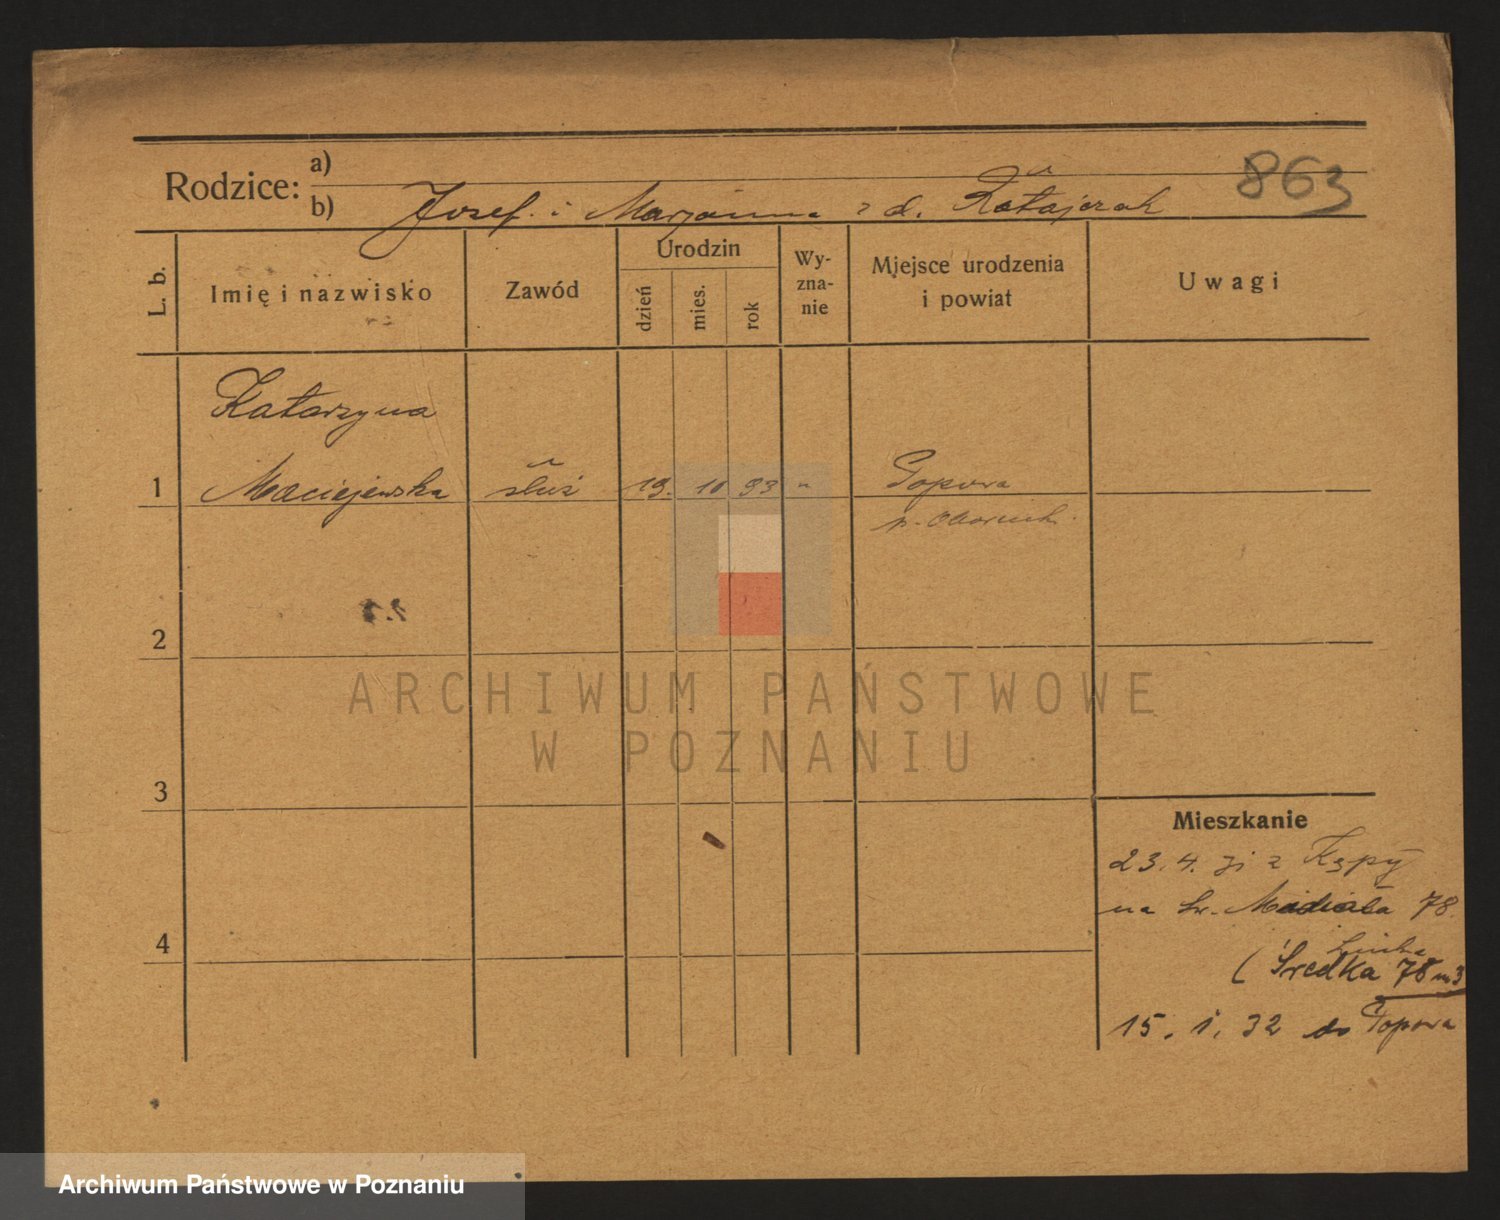 863
Rodzice: a)
b) Josef i Marjanna z d. Ratajczak
L. b.
Imię i nazwisko
Zawód
Urodzin
dzień
mies.
rok
Wy-
zna-
nie
Miejsce urodzenia
i powiat
Uwagi
Katarzyna
1 Maciejewska służ 19. 10 93 " Popowa
p.
2
3
4
Mieszkanie
23.4. z Kępy
na 78.
(Sredka 78 m 3
15. 1. 32 do Popowa
ARCHIWUM PAŃSTWOWE
W POZNANIU
Archiwum Państwowe w Poznaniu